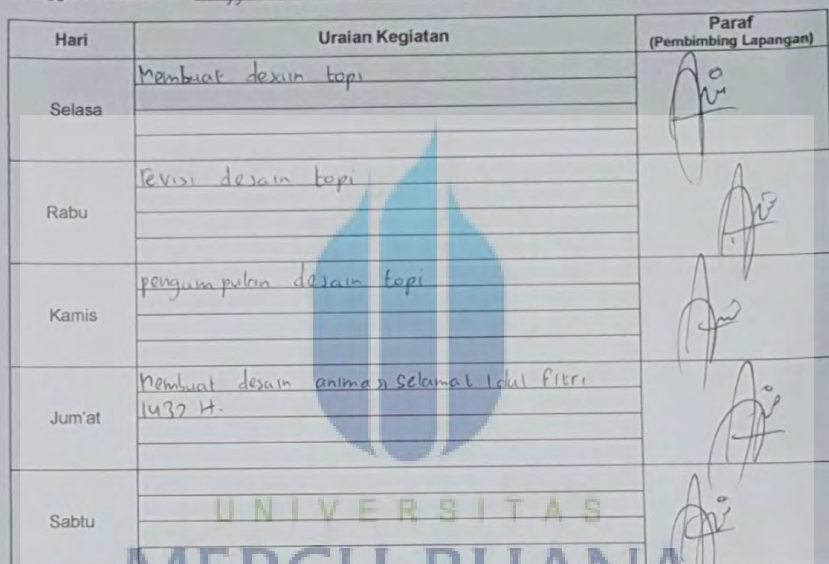 Hari Uraian Kegiatan Paraf
(Pembimbing Lapangan)
Selasa
Membuat desain topi
Rabu
revisi desain topi
Kamis
pengumpulan desain topi
Jum'at
Membuat desain animasi Selamat Idul Fitri
1437 H.
Sabtu
UNIVERSITAS
MERCU BUANA